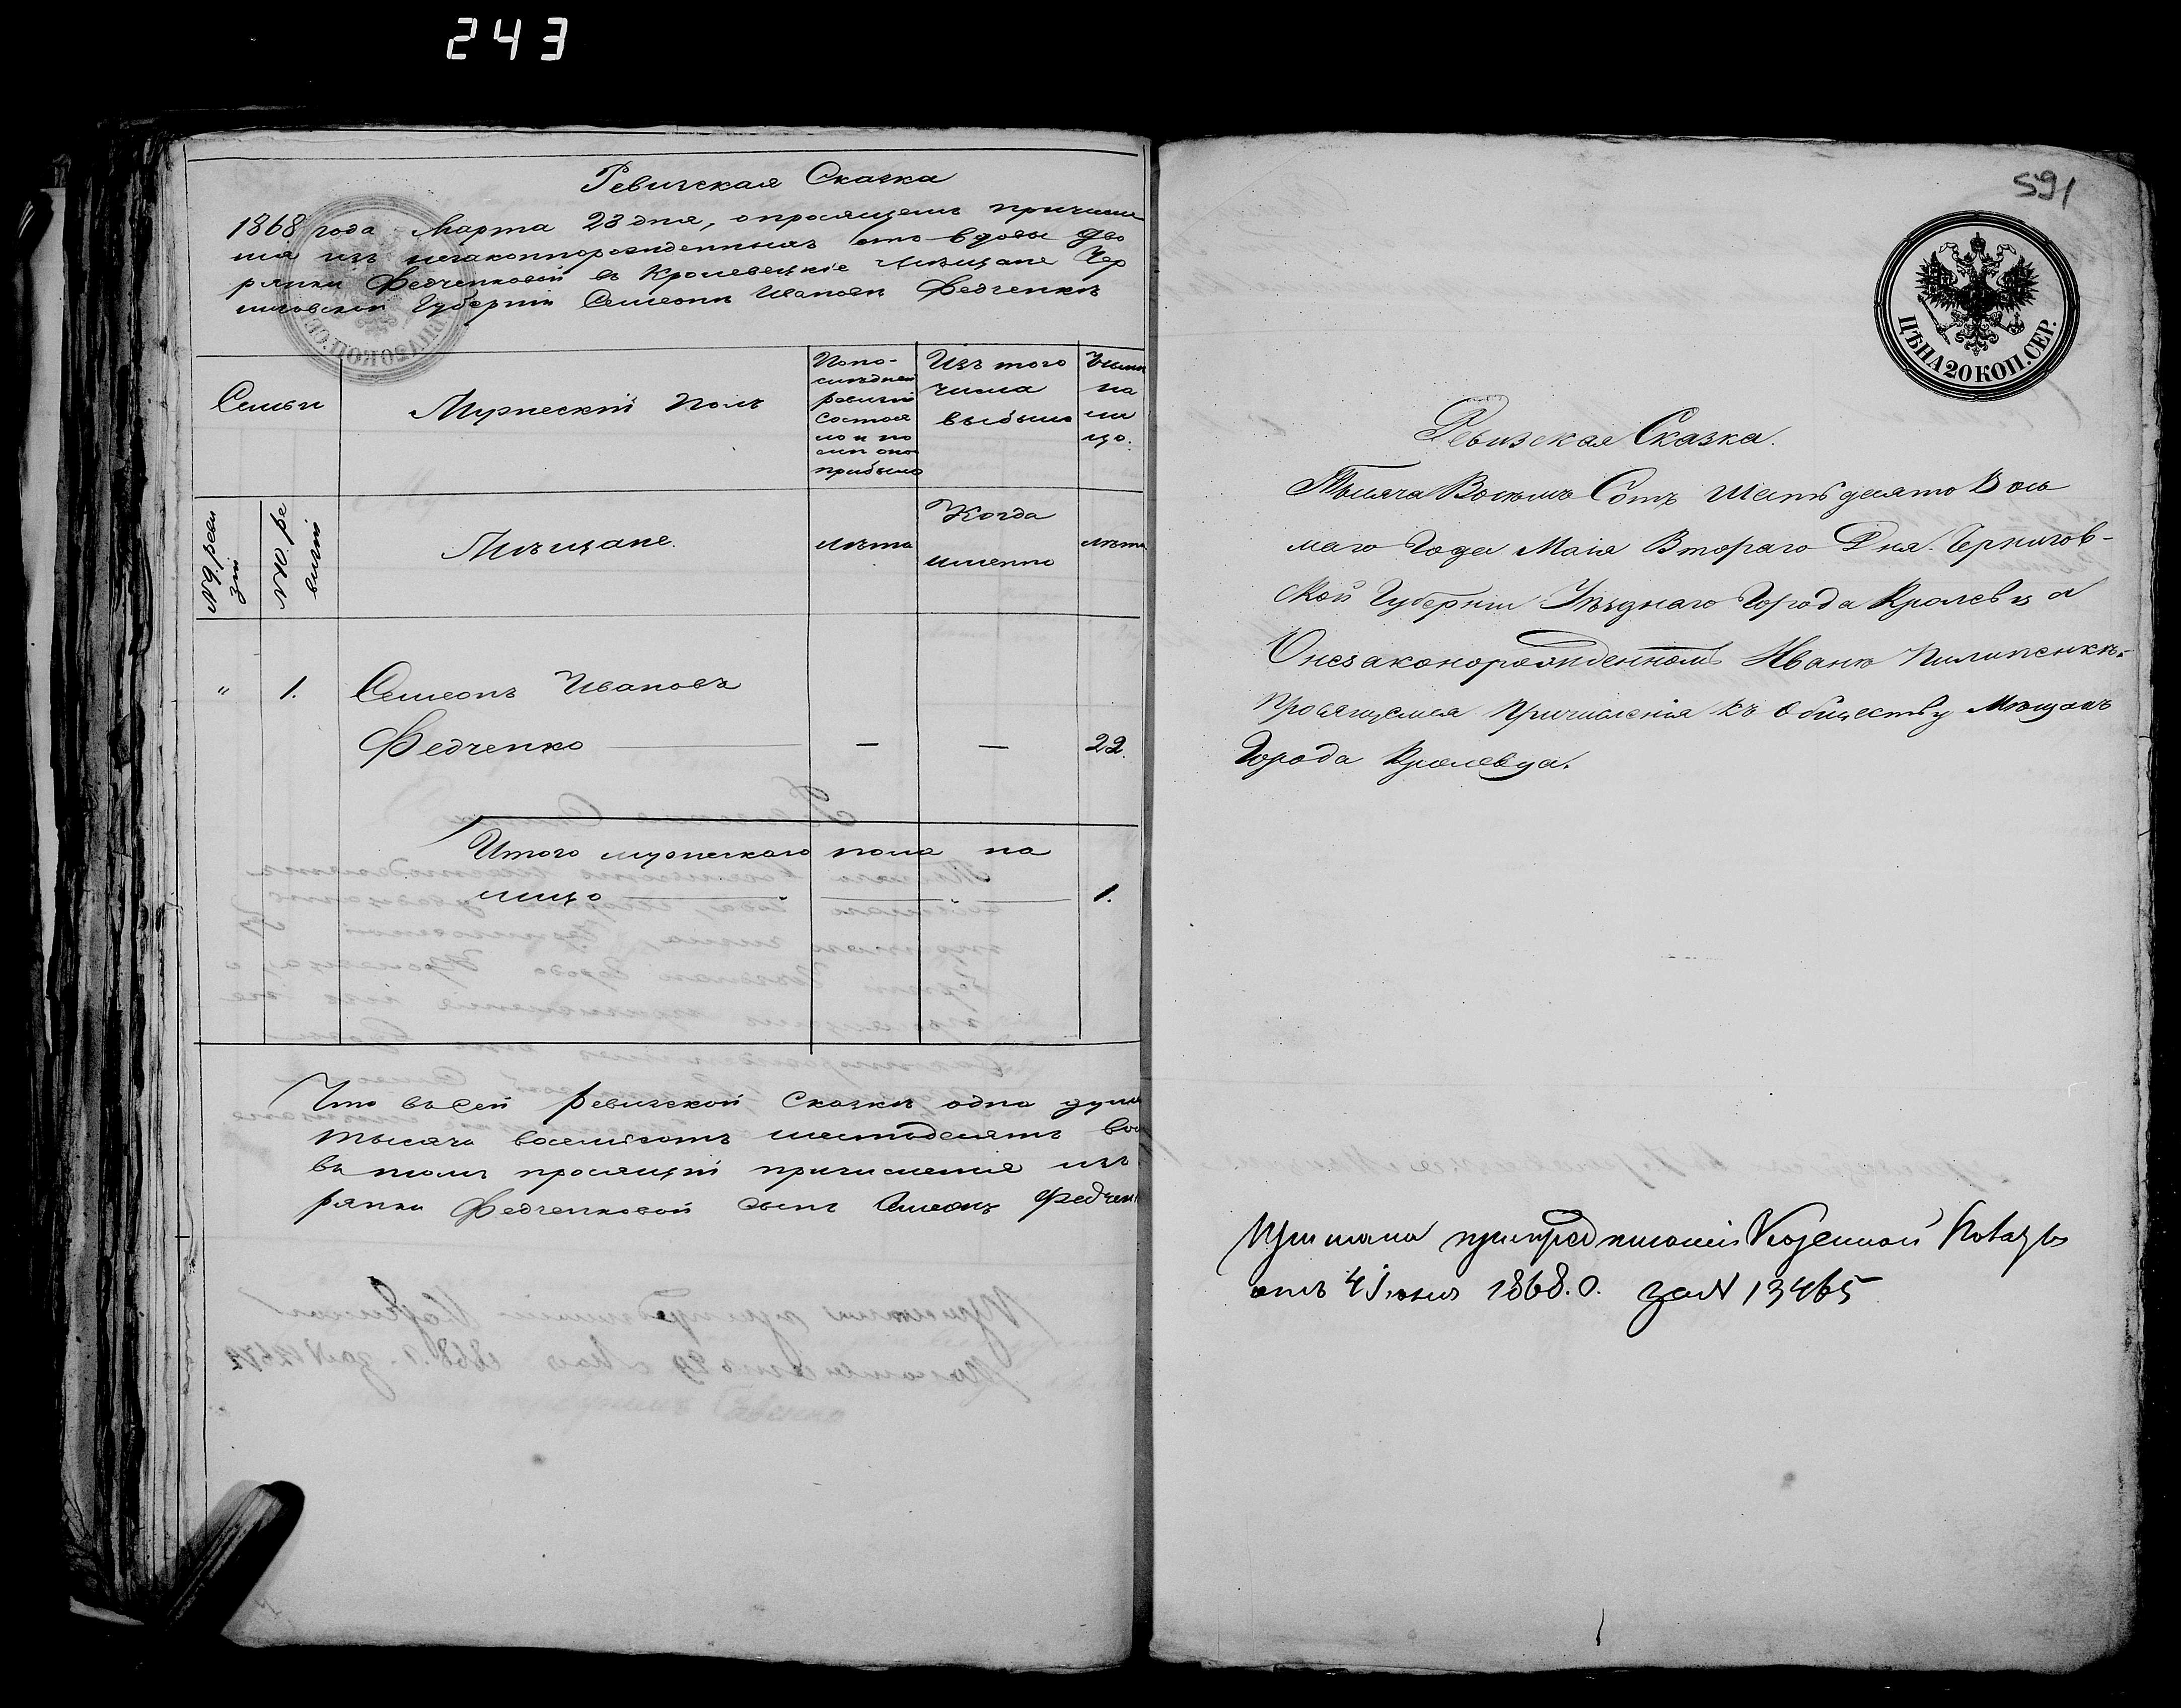 243
Ревизская Сказка
1868 года Марта 23 дня, о просящемъ причисле
нія изъ незаконнорожденныхъ отъ вдовы дво
рянки Федченковой въ Кролевецкіе Мѣщане Чер
ниговской Губерніи Семеонѣ Ивановѣ Федченкѣ
Семьи
Мужескій Полъ
По по-
слѣдней
ревизіи
состоя
ло и по
слѣ оной
прибыло
Изъ того
числа
выбыло
Нынѣ
на
ли
цо.
№ 9. реви
зіи
№ 10. ре
визіи
Мѣщане.
лѣта
Когда
именно
лѣта
" 1. Семеонъ Ивановъ
Федченко — — 22.
Итого мужескаго пола на
лицо 1.
Что въ сей ревизской сказкѣ одна душа
тысяча восемьсотъ шестьдесятъ вос
въ томъ просящій причисленія изъ
рянки Федченковой сынъ Семеонъ Федченк
591
ЦѢНА 20 КОП. СЕР.
Ревизская Сказка.
Тысяча Восемь Сотъ Шестьдесято Вось
маго Года Маія Втораго Дня. Чернигов-
ской Губерніи Уѣзднаго Города Кролевца
О незаконорожденномъ Иванѣ Пилипенкѣ.
просящемся Причисленія къ Обществу Мѣщанъ
Города Кролевца.
при предписаніи Казенной Палаты
отъ 4 Іюня 1868. г. за № 13465